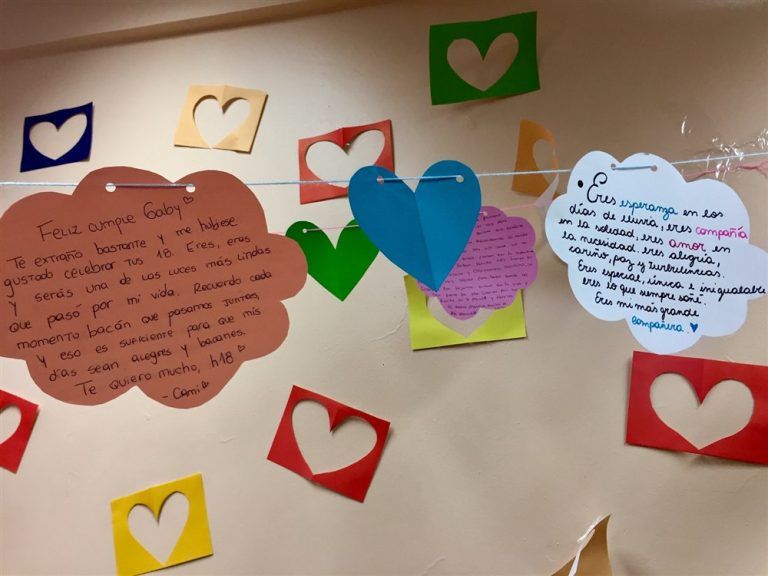 Feliz cumple Gaby
Te extraño bastante y me hubiese
gustado celebrar tus 18. Eres, eras
y serás una de las luces más lindas
que pasó por mi vida. Recuerdo cada
momento bacán que pasamos juntas,
y eso es suficiente para que mis
días sean alegres y bacanes.
Te quiero mucho, h18
- Cami
• Eres esperanza en los
días de lluvia, eres compañía
en la soledad, eres amor en
la necesidad, eres alegría,
cariño, paz y turbulencias.
Eres especial, única e inigualable
eres lo que siempre soñé.
Eres mi más grande
compañera.